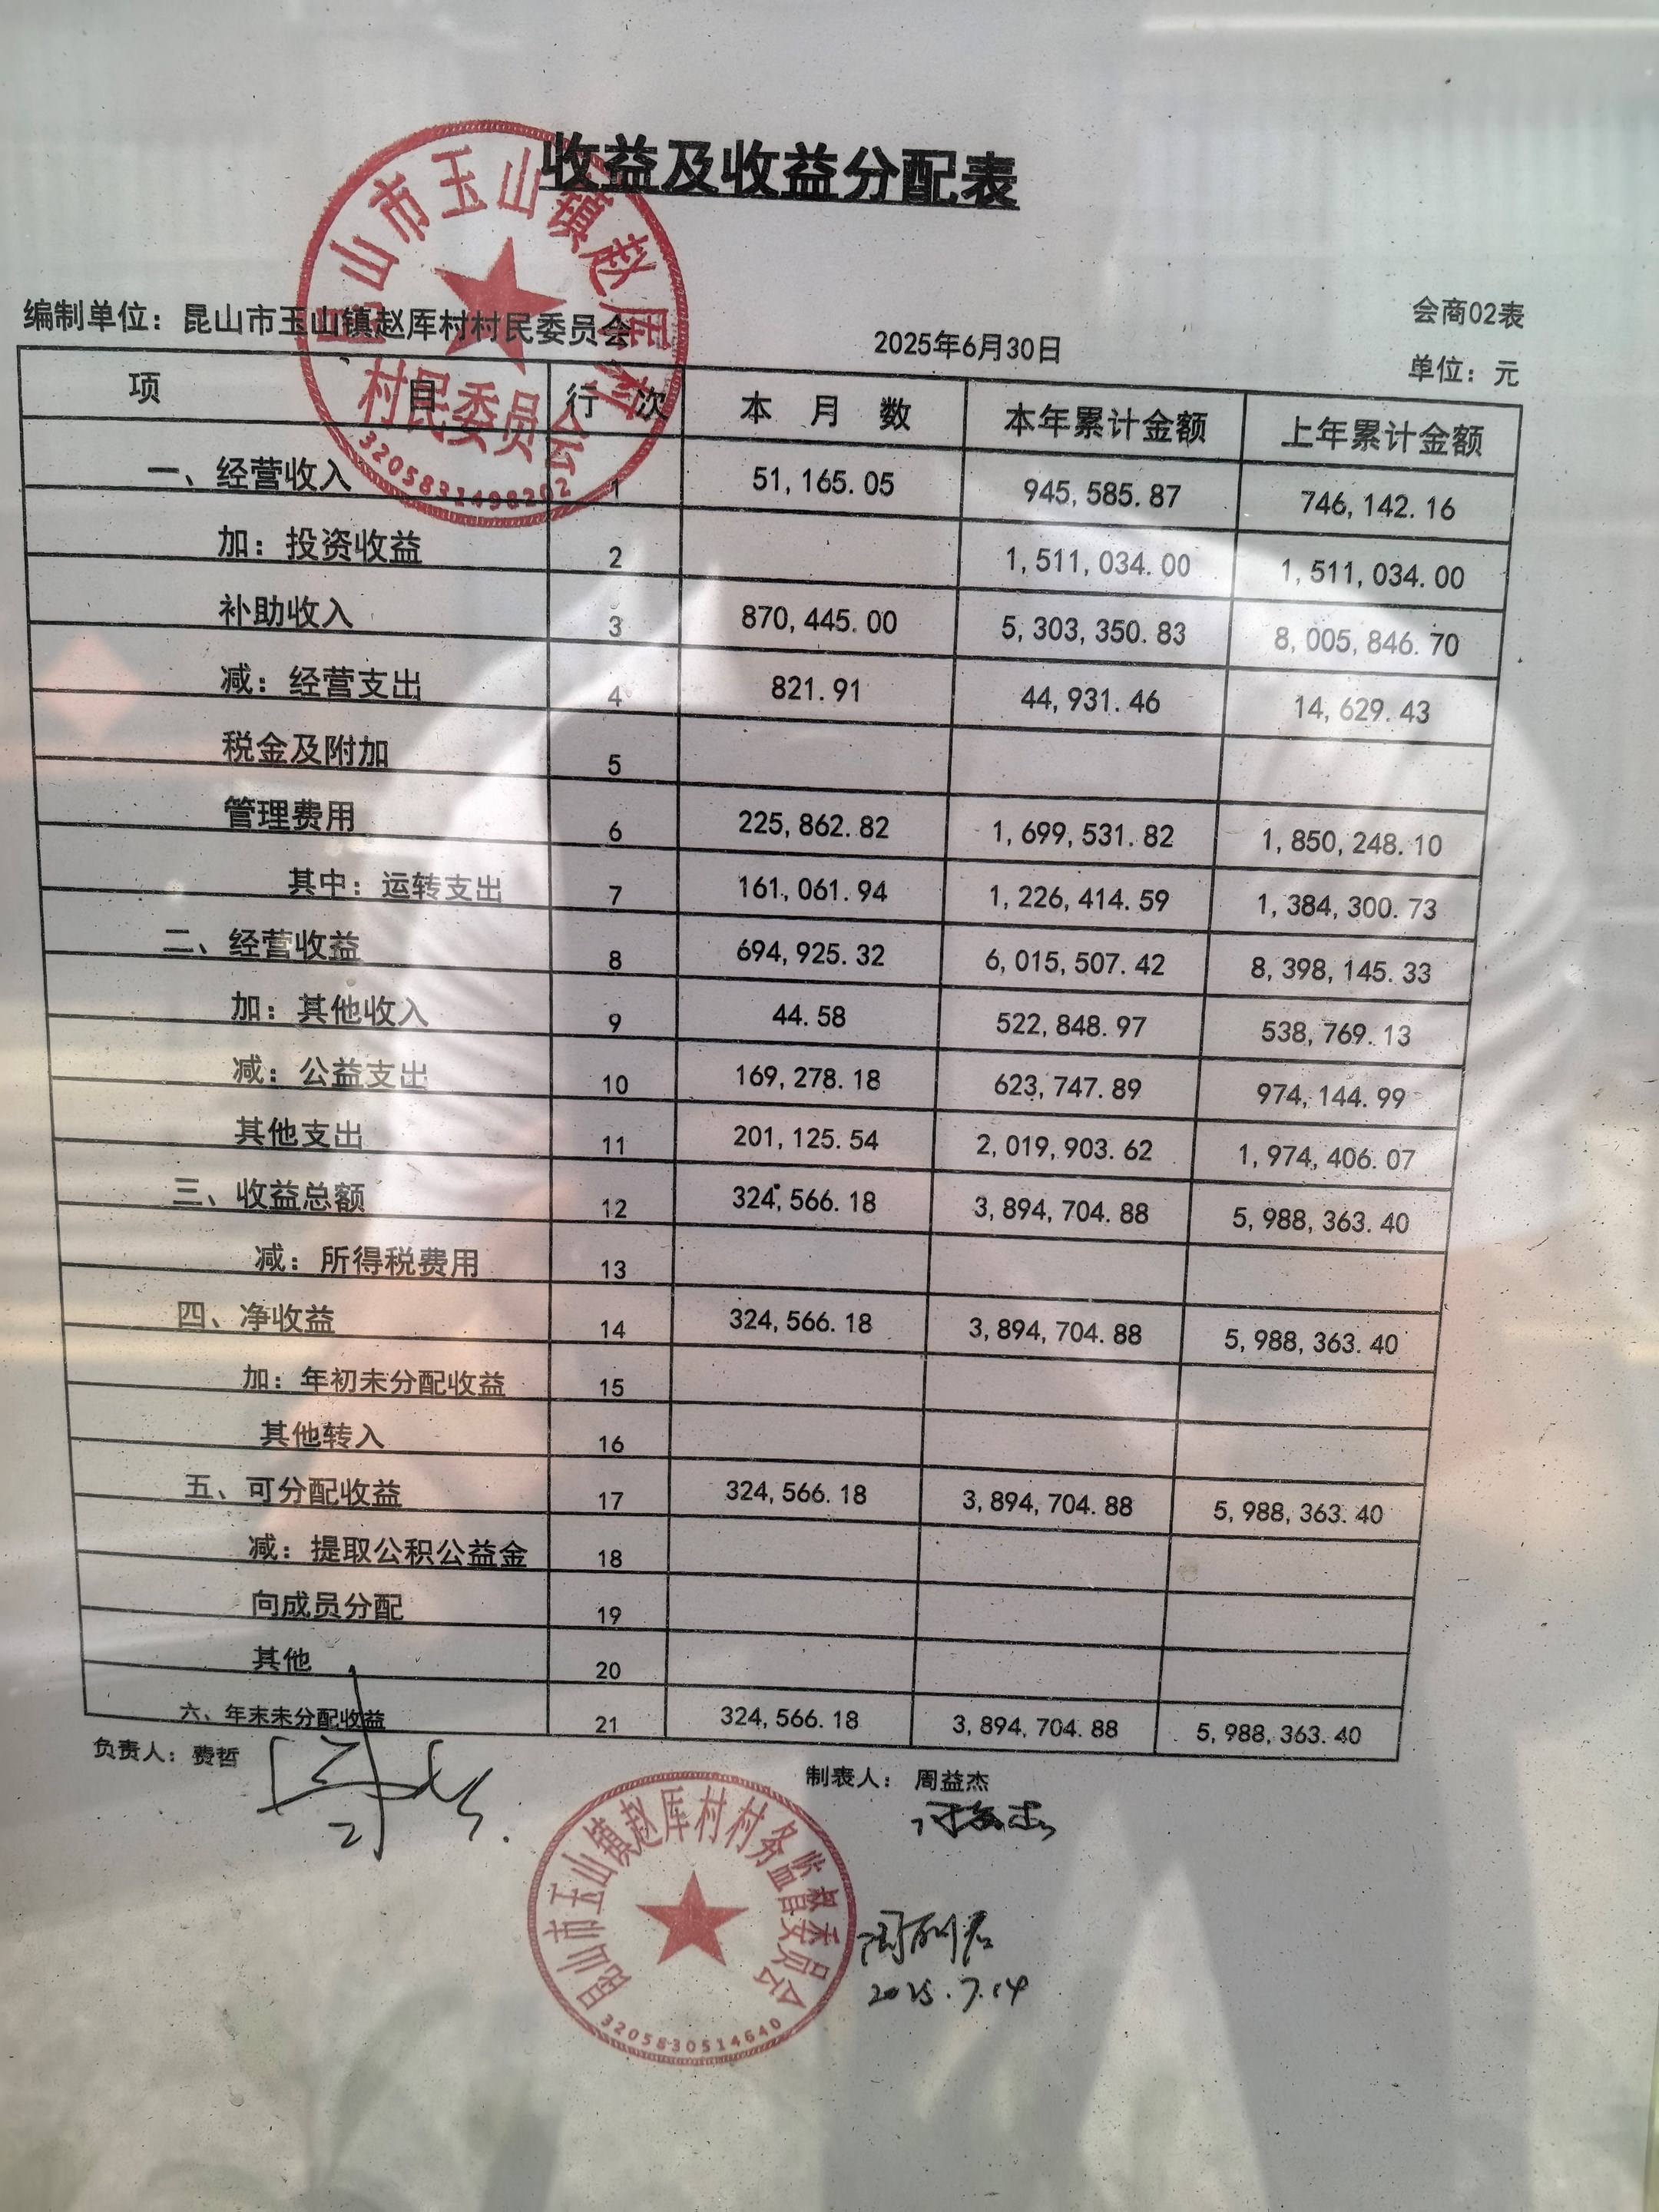 收益及收益分配表
会商02表
编制单位：昆山市玉山镇赵厍村村民委员会 2025年6月30日 单位：元
项 目 行 次 本 月 数 本年累计金额 上年累计金额
一、经营收入 1 51,165.05 945,585.87 746,142.16
加：投资收益 2 1,511,034.00 1,511,034.00
补助收入 3 870,445.00 5,303,350.83 8,005,846.70
减：经营支出 4 821.91 44,931.46 14,629.43
税金及附加 5
管理费用 6 225,862.82 1,699,531.82 1,850,248.10
其中：运转支出 7 161,061.94 1,226,414.59 1,384,300.73
二、经营收益 8 694,925.32 6,015,507.42 8,398,145.33
加：其他收入 9 44.58 522,848.97 538,769.13
减：公益支出 10 169,278.18 623,747.89 974,144.99
其他支出 11 201,125.54 2,019,903.62 1,974,406.07
三、收益总额 12 324,566.18 3,894,704.88 5,988,363.40
减：所得税费用 13
四、净收益 14 324,566.18 3,894,704.88 5,988,363.40
加：年初未分配收益 15
其他转入 16
五、可分配收益 17 324,566.18 3,894,704.88 5,988,363.40
减：提取公积公益金 18
向成员分配 19
其他 20
六、年末未分配收益 21 324,566.18 3,894,704.88 5,988,363.40
负责人：费哲 制表人：周益杰
2025.7.14
昆山市玉山镇赵厍村
村民委员会
3205831498202
昆山市玉山镇赵厍村村务监督委员会
3205830514640